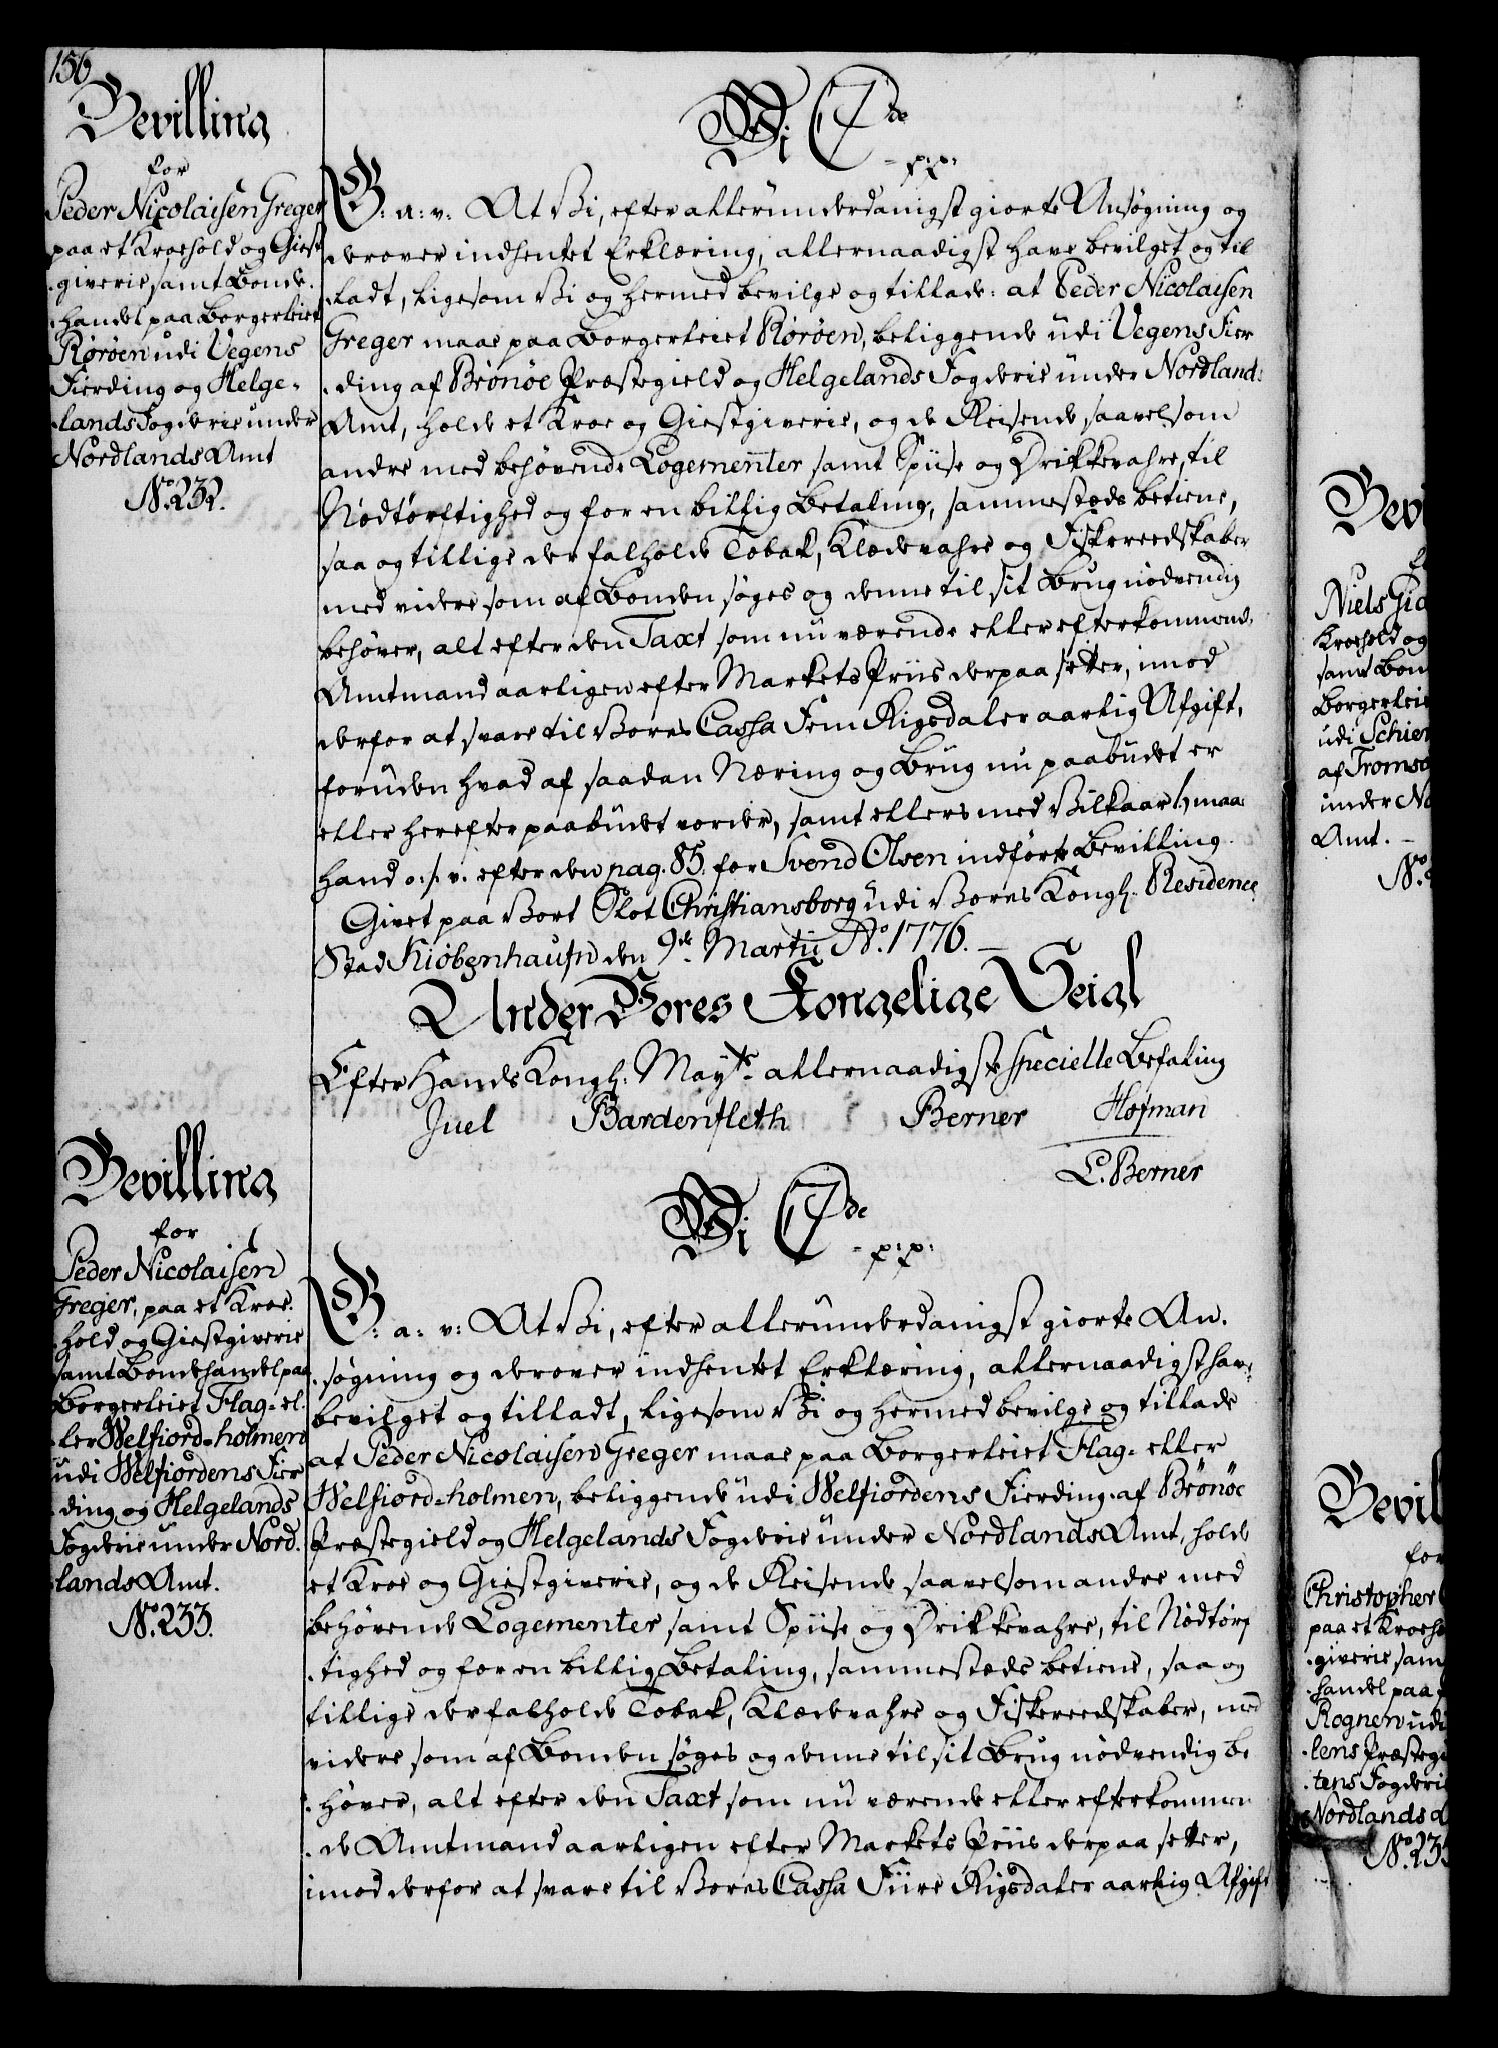 156
Bevilling
for
Peder Nicolaisen Greger
paa et Kroehold og Giest
giverie samt Bonde-
handel paa Borgerleiet
Rørøen udi Vegens
Fierding og Helge-
lands Fogderie under
Nordlands Amt
No. 232.
Wi C 7de
- p:p:
G: a: v: At Vi, efter allerunderdanigst giorte Ansøgning og
derover indhentet Erklæring, allernaadigst have bevilget og til
ladt, ligesom Vi og hermed bevilge og tillade: at Peder Nicolaisen
Greger maae paa Borgerleiet Rørøen, beliggende udi Vegens Fier
ding af Brønøe Præstegield og Helgelands Fogderie under Nordlands
Amt, holde et Kroe og Giestgiverie, og de Reisende saavelsom
andre med behøvende Logementer samt Spiise og Drikkevahre, til
Nødtørftighed og for en billig Betaling, sammestæds betiene,
saa og tillige der falholde Tobak, Klædevahre og Fiskereedskaber
med videre som af Bonden søges og denne til sit Brug nødvendig
behøver, alt efter den Taxt som nu værende eller efterkommende
Amtmand aarligen efter Markets Priis derpaa setter, imod
derfor at svare til Vores Cassa Fem Rigsdaler aarlig Afgift,
foruden hvad af saadan Næring og Brug nu paabudet er
eller herefter paabudet vorder, samt ellers med Vilkaar h, maae
hand o: s: v: efter den pag. 85. for Svend Olsen indførte Bevilling
Givet paa Vort Slot Christiansborg udi Vores Kongl: Residence
Stad Kiøbenhaufn den 9de Martii Ao. 1776. —
Under Vores Kongelige Seigl
Efter Hands Kongl: Mayts. allernaadigste specielle Befaling
Juel Bardenfleth Berner Hofman
L. Berner
Bevilling
for
Peder Nicolaisen
Greger, paa et Kroe-
hold og Giestgiverie
samt Bondehandel paa
Borgerleiet Flag- el-
ler Welfiord-holmen
udi Welfiordens Fier
ding og Helgelands
Fogderie under Nord-
lands Amt.
No. 233.
Wi C 7de
- p:p:
G: a: v: At Vi, efter allerunderdanigst giorte An-
søgning og derover indhentet Erklæring, allernaadigst have
bevilget og tilladt, ligesom Vi og hermed bevilge og tillade
at Peder Nicolaisen Greger maae paa Borgerleiet Flag- eller
Welfiord-holmen, beliggende udi Welfiordens Fierding af Brønøe
Præstegield og Helgelands Fogderie under Nordlands Amt, holde
et Kroe og Giestgiverie, og de Reisende saavelsom andre med
behøvende Logementer samt Spiise og Drikkevahre, til Nødtørf
tighed og for en billig Betaling, sammestæds betiene, saa og
tillige der falholde Tobak, Klædevahre og Fiskereedskaber, med
videre som af Bonden søges og denne til sit Brug nødvendig be
høver, alt efter den Taxt som nu værende eller efterkommen
de Amtmand aarligen efter Markets Priis derpaa setter,
imod derfor at svare til Vores Cassa Fiire Rigsdaler aarlig Afgift
Bevi
Niels Gi
Kroehold og
samt Bon
Borgerlei
udi Schier
af Tromsø
under No
Amt. –
No.
Bevil
for
Christopher
paa et Kroeh
giverie sam
handel paa
Rognen udi
lens Præsteg
tens Fogderi
Nordlands A
No. 235